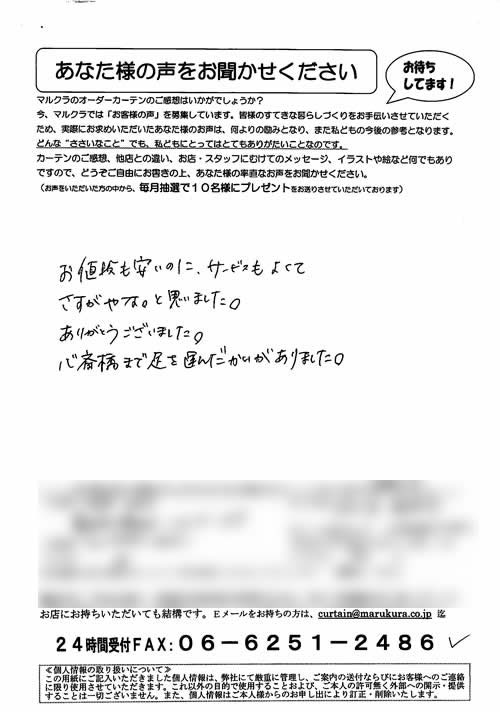 あなた様の声をお聞かせください
お待ち
してます！
マルクラのオーダーカーテンのご感想はいかがでしょうか？
今、マルクラでは「お客様の声」を募集しています。皆様のすてきな暮らしづくりをお手伝いさせていただく
ため、実際にお求めいただいたあなた様のお声は、何よりの励みとなり、また私どもの今後の参考となります。
どんな“ささいなこと”でも、私どもにとってはとてもありがたいことなのです。
カーテンのご感想、他店との違い、お店・スタッフにむけてのメッセージ、イラストや絵など何でもあり
ですので、どうぞご自由にお書きの上、あなた様の率直なお声をお聞かせください。
（お声をいただいた方の中から、毎月抽選で１０名様にプレゼントをお送りさせていただいております）
お値段も安いのに、サービスもよくて
さすがやな。と思いました。
ありがとうございました。
心斎橋まで足を運んだかいがありました。
お店にお持ちいただいても結構です。Ｅメールをお持ちの方は、curtain@marukura.co.jp 迄
２４時間受付FAX：０６－６２５１－２４８６
≪個人情報の取り扱いについて≫
この用紙にご記入いただきました個人情報は、弊社にて厳重に管理し、ご案内の送付ならびにお客様へのご連絡
に限り使用させていただきます。これ以外の目的で使用することおよび、ご本人の許可無く外部への開示・提供
することは一切ございません。また、個人情報はご本人様からのお申し出により訂正・削除いたします。